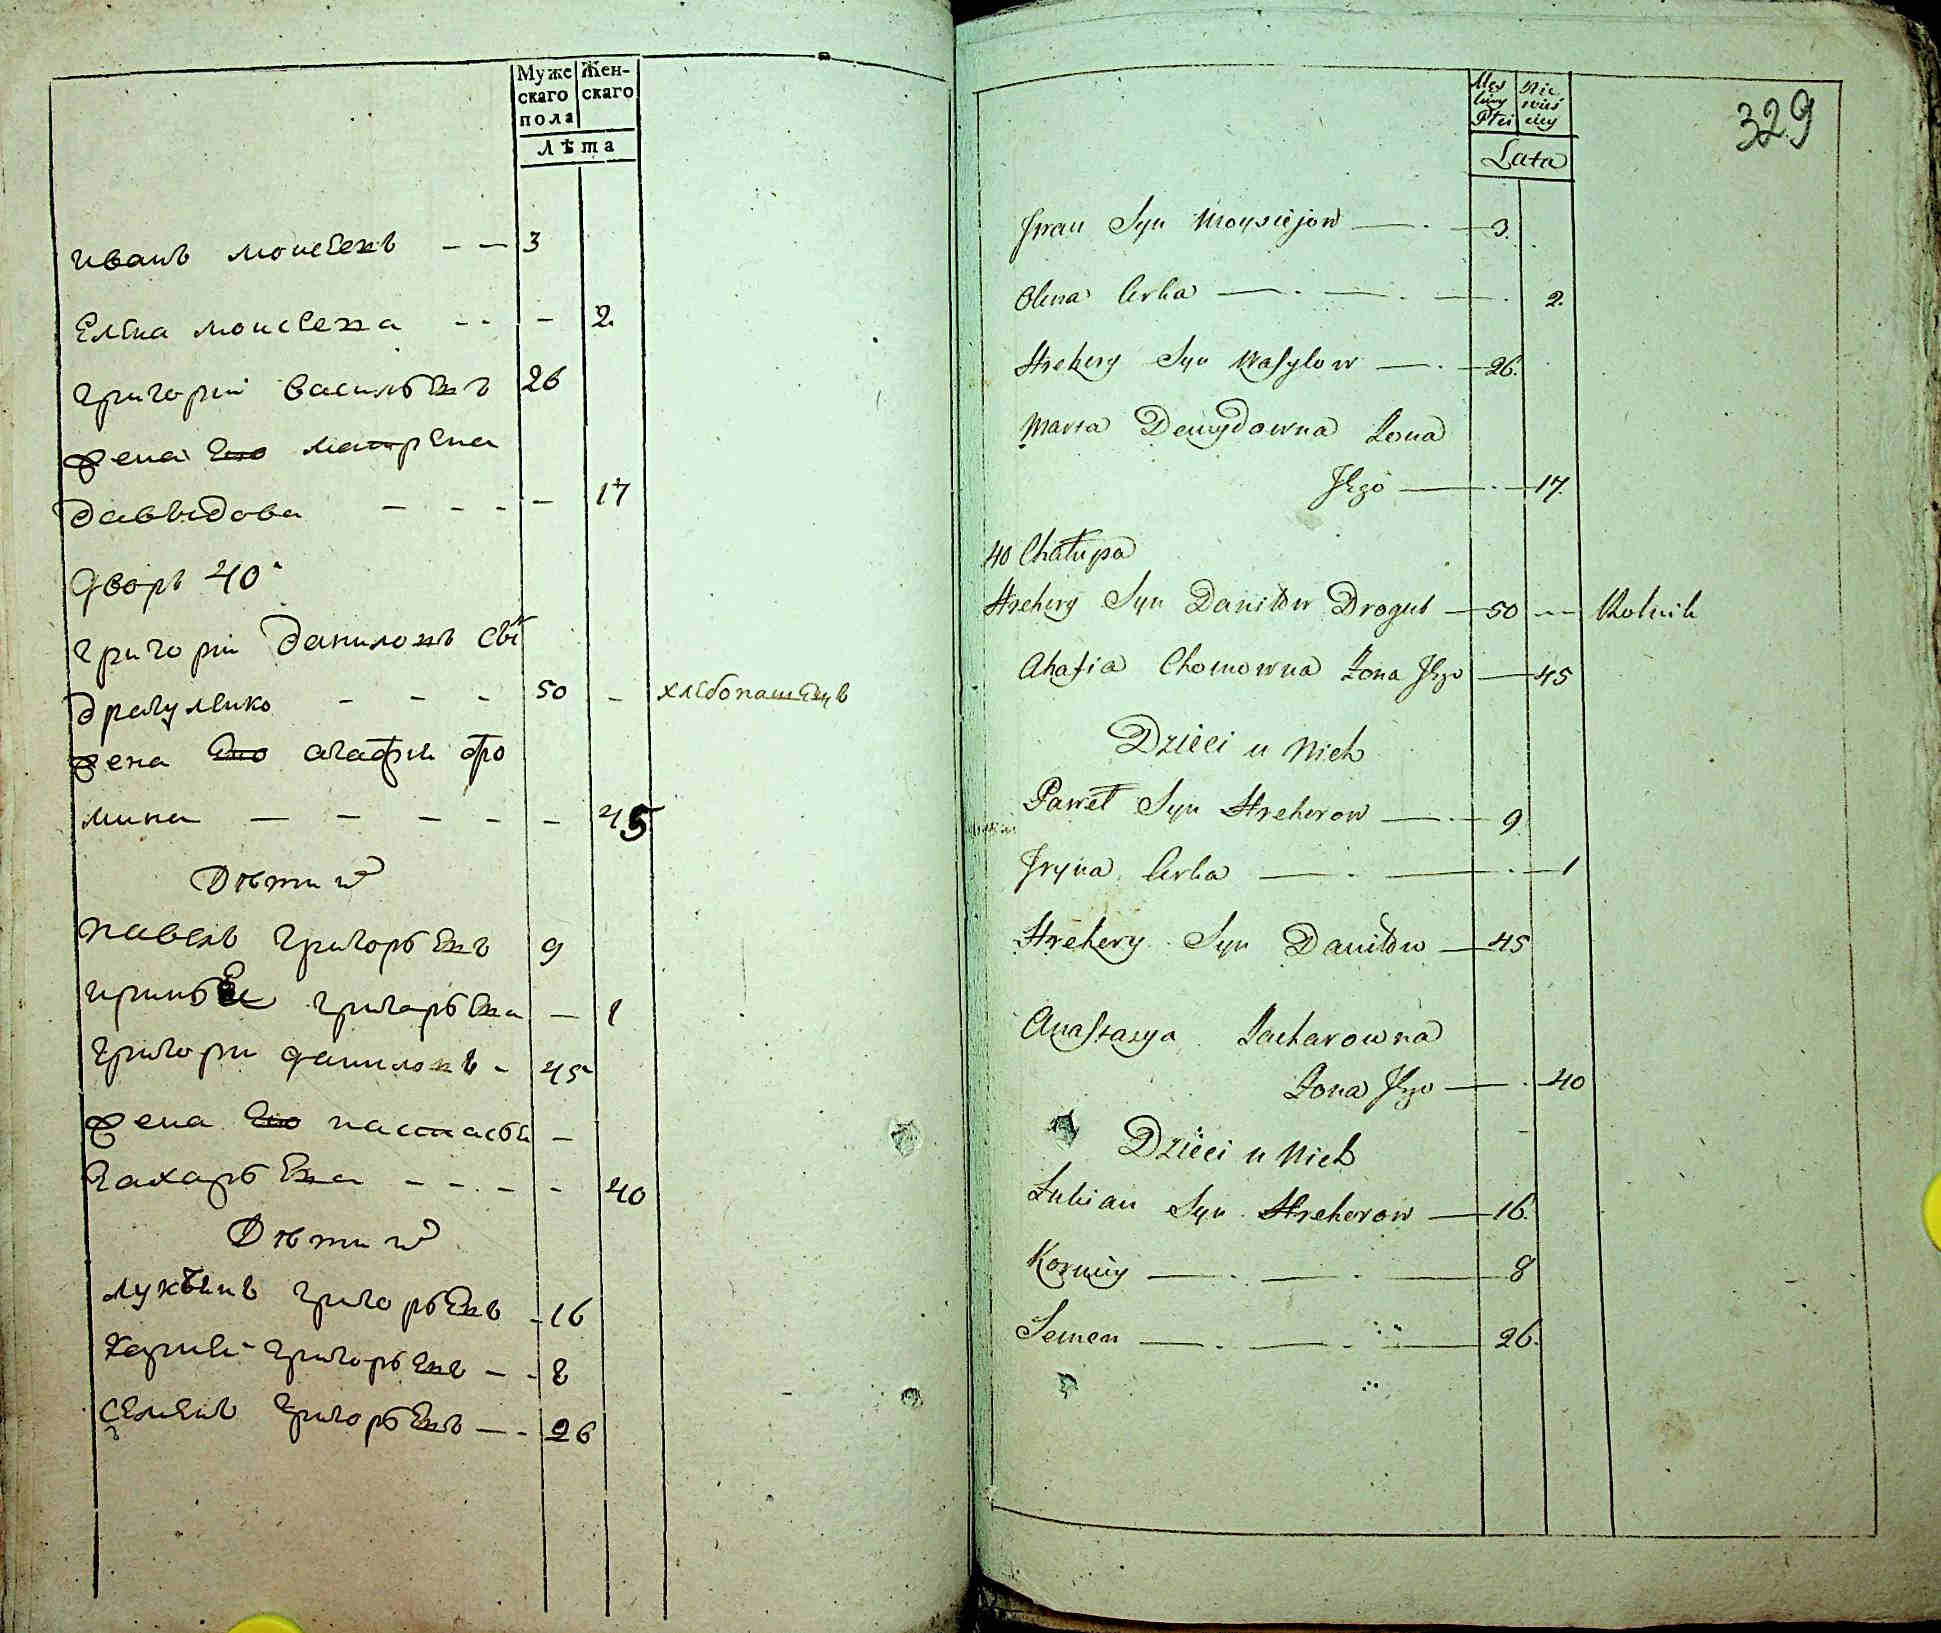 Муже Жен-
скаго скаго
пола
Лѣта
иванъ моисеевъ — — 3
Елена моисеева - - - 2
григорий васильевъ 26
жена его матрена
давыдова - - - - 17
дворъ 40
григорий даниловъ сы
драгуленко - - - 50 - хлебопашецъ
жена его агафия фо
мина — — — — — 45
Дѣти их
павелъ григорьевъ 9
григорьева — 1
григори данилов - 45
жена его настасья —
Захарьева - - - - 40
Дѣти их
лукьянъ григорьевъ - 16
григорьевъ - - 8
Семенъ григорьевъ - - 26
329
Męs Nie
kiey wieś
Płci ciey
Lata
Jwan Syn Moysiejow — . — 3.
Olena Corka — . — . — . 2.
Hrehory Syn Wasylow — . — 26.
Marta Demydowna Zona
Jego — . — 17.
40 Chałupa
Hrehory Syn Daniłow Drogul — 50 — Rolnik
Ahafia Chomowna Zona Jego — 45
Dzieci u Nich
Paweł Syn Hrehorow — . — 9
Jryna Corka — . — . — 1
Hrehory Syn Daniłow — 45
Anastasya Zacharowna
Zona Jego — . — 40
Dzieci u Nich
Lukian Syn Hrehorow — 16.
Korniy — . — . — 8
Semen — . — . — 26.